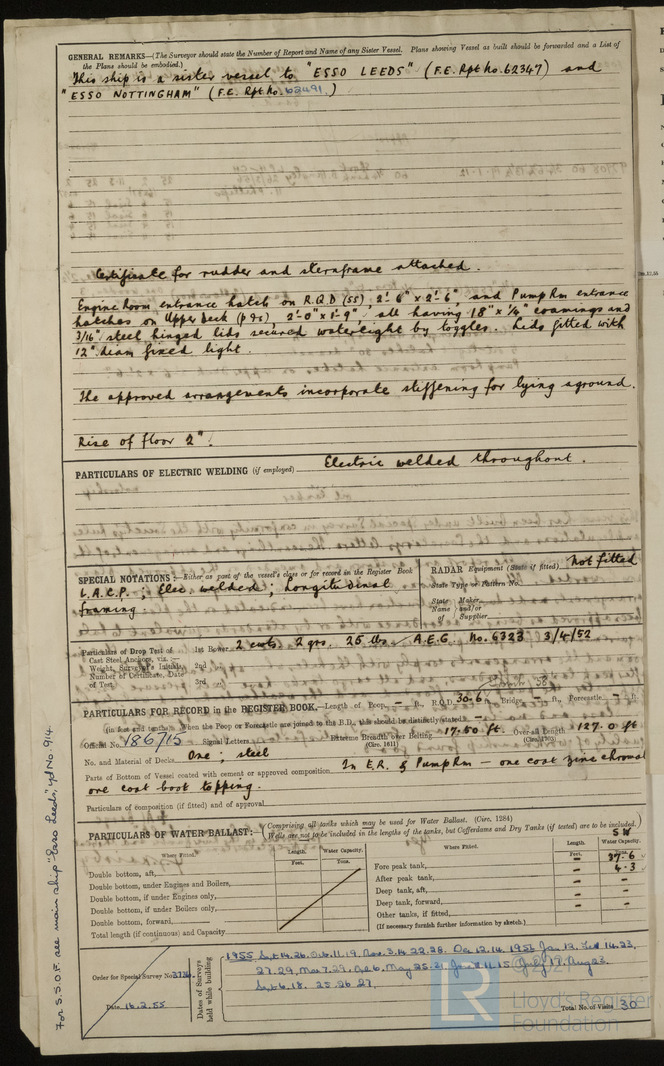 GENERAL REMARKS—(The Surveyor should state the Number of Report and Name of any Sister Vessel. Plans showing Vessel as built should be forwarded and a List of
the Plans should be embodied.)
This ship is a sister vessel to "ESSO LEEDS" (F.E. Rpt No. 62347) and
"ESSO NOTTINGHAM" (F.E. Rpt No. 62491.)
Certificate for rudder and sternframe attached.
Engine Room entrance hatch on R.Q.D (SS), 2'-6" x 2'-6", and Pump Rm entrance
hatches on Upper Deck (P & S), 2'-0" x 1'-9", all having 18" x 1/4" coamings and
3/16" steel hinged lids secured watertight by toggles. Lids fitted with
12" diam fixed light.
The approved arrangements incorporate stiffening for lying aground.
Rise of floor 2".
PARTICULARS OF ELECTRIC WELDING (if employed) Electric welded throughout.
SPECIAL NOTATIONS:— Either as part of the vessel's class or for record in the Register Book
L.A.C.P.; Elec welded; Longitudinal
framing.
RADAR Equipment (State if fitted) Not fitted
State Type or Pattern No.
State Name of Maker and/or Supplier
Particulars of Drop Test of Cast Steel Anchors, viz.:—
Weight, Surveyor's Initials, Number of Certificate, Date of Test.
1st Bower 2 cwts 2 qrs. 25 lbs. A.E.G. No. 6323 3/4/52
2nd
3rd
PARTICULARS FOR RECORD in the REGISTER BOOK.—Length of Poop, - ft., R.Q.D. 30.6 ft., Bridge, - ft., Forecastle - ft.
(in feet and tenths). When the Poop or Forecastle are joined to the B.D., this should be distinctly stated -
Official No. 186715 Signal Letters Extreme Breadth over Belting 17.50 ft. Over-all Length 127.0 ft
(Circ. 1611) (Circ. 1703)
No. and Material of Decks One; steel
Parts of Bottom of Vessel coated with cement or approved composition In E.R. & Pump Rm – one coat zinc chromate
one coat boot topping.
Particulars of composition (if fitted) and of approval
PARTICULARS OF WATER BALLAST:—(Comprising all tanks which may be used for Water Ballast. (Circ. 1284)
Wells are not to be included in the lengths of the tanks, but Cofferdams and Dry Tanks (if tested) are to be included.)
Where Fitted. Length. Water Capacity. Where Fitted. Length. SW Water Capacity.
Feet. Tons. Feet. Tons.
Double bottom, aft,
Double bottom, under Engines and Boilers,
Double bottom, if under Engines only,
Double bottom, if under Boilers only,
Double bottom, forward,
Total length (if continuous) and Capacity
Fore peak tank, - 37.6
After peak tank, - 4.3
Deep tank, aft, - -
Deep tank, forward, - -
Other tanks, if fitted, - -
(If necessary furnish further information by sketch.)
Order for Special Survey No.
Date 16.2.55
Dates of Surveys held while building
1955 Sept 14. 26. Oct 6. 11. 19. Nov. 3. 14. 22. 28. Dec 12. 14. 1956 Jan 13. Feb 14. 23.
27. 29. Mar 7. 29.
Sept 6. 18. 25. 26. 27.
Total No. of Visits 30
For S.S.O.F. see main ship "Esso Leeds", yd No 914.
© 2021
LR
Lloyd's Register
Foundation